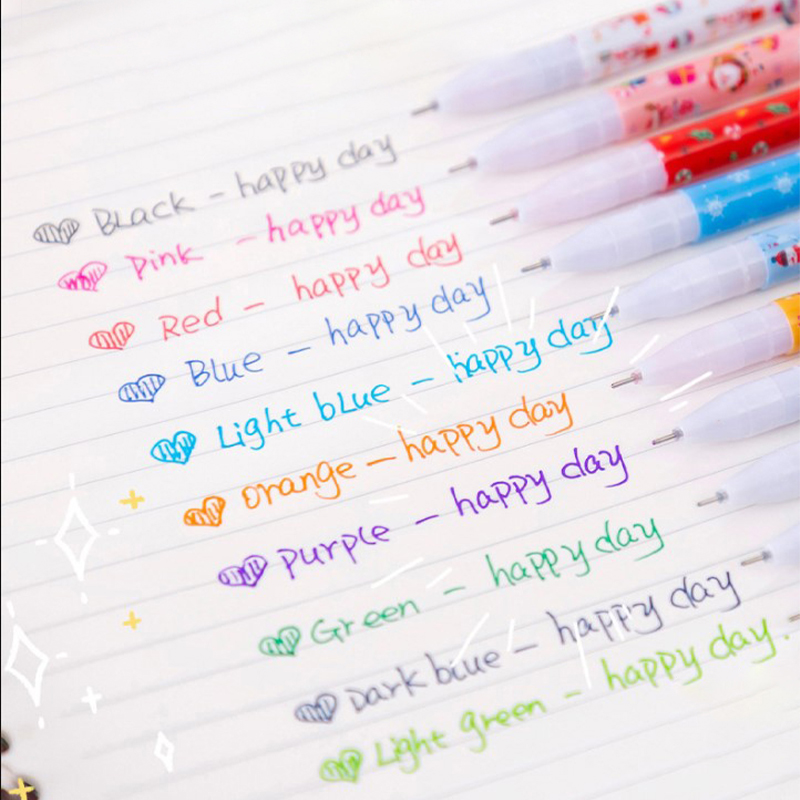 Black - happy day
Pink - happy day
Red - happy day
Blue - happy day
Light blue - happy day
orange - happy day
purple - happy day
Green - happy day
Dark blue - happy day
Light green - happy day.